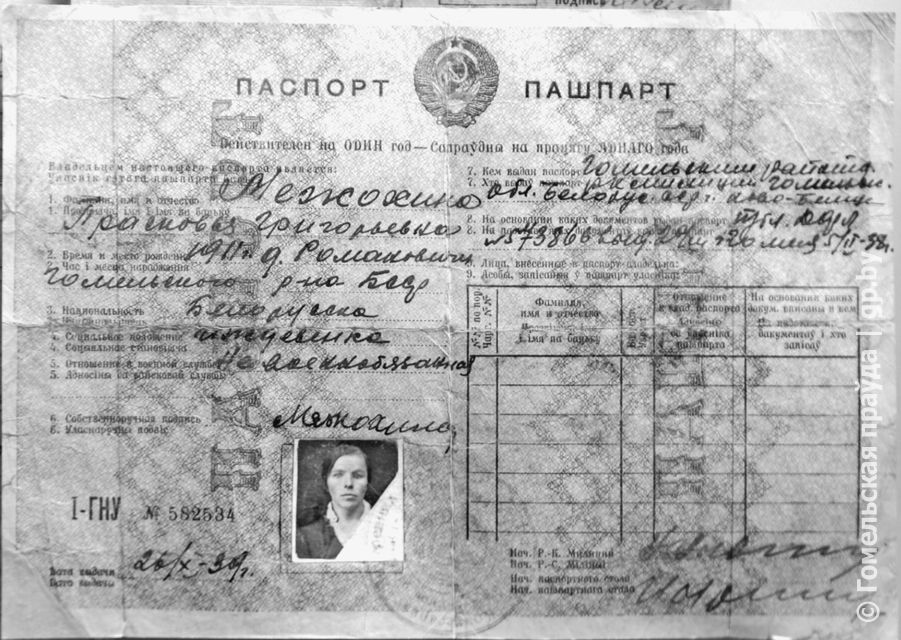 ПАСПОРТ
ПАШПАРТ
Действителен на ОДИН год — Сапраўдны на працягу АДНАГО года
Владельцем настоящего паспорта является:
Уласнік гэтага пашпарту
1. Фамилия, имя и отчество
1. Прозвішча, імя і імя па бацьку
Межохина
Прасковья Григорьевна
2. Время и место рождения
2. Час і месца нараджэння
1911 г. д. Романовичи
Гомельского р-на БССР
3. Национальность
Белорусска
4. Социальное положение
4. Сацыяльнае становішча
иждивенка
5. Отношение к военной службе
5. Адносіны да вайсковай службы
Не военнообязанная
6. Собственноручная подпись
6. Уласнаручны подпіс
Межохина
I-ГНУ № 582534
Дата выдачи
Дата выдачы
26/XI-39г.
7. Кем выдан паспорт
7. Хто выдаў пашпарт
Гомельским
обл. Белорус. ССР г. Ново-Бел
8. На основании каких документов выдан паспорт
№ 573866 выд.
9. Лица, внесенные в паспорт владельца:
9. Асобы, запісаныя ў пашпарт уласніка:
№№ по пор.
Фамилия, имя и отчество
Прозвішча, імя і імя па бацьку
Отношение к влад. паспорта
Адносіны да уласніка пашпарта
На основании каких докум. вписаны и кем
На падставе якіх дакументаў і хто запісаў
Нач. Р.-К. Милиции
Нач. Р.-С. Міліцыі
Нач. паспортного стола
Нач. пашпартнага стала
© Гомельская праўда | gp.by